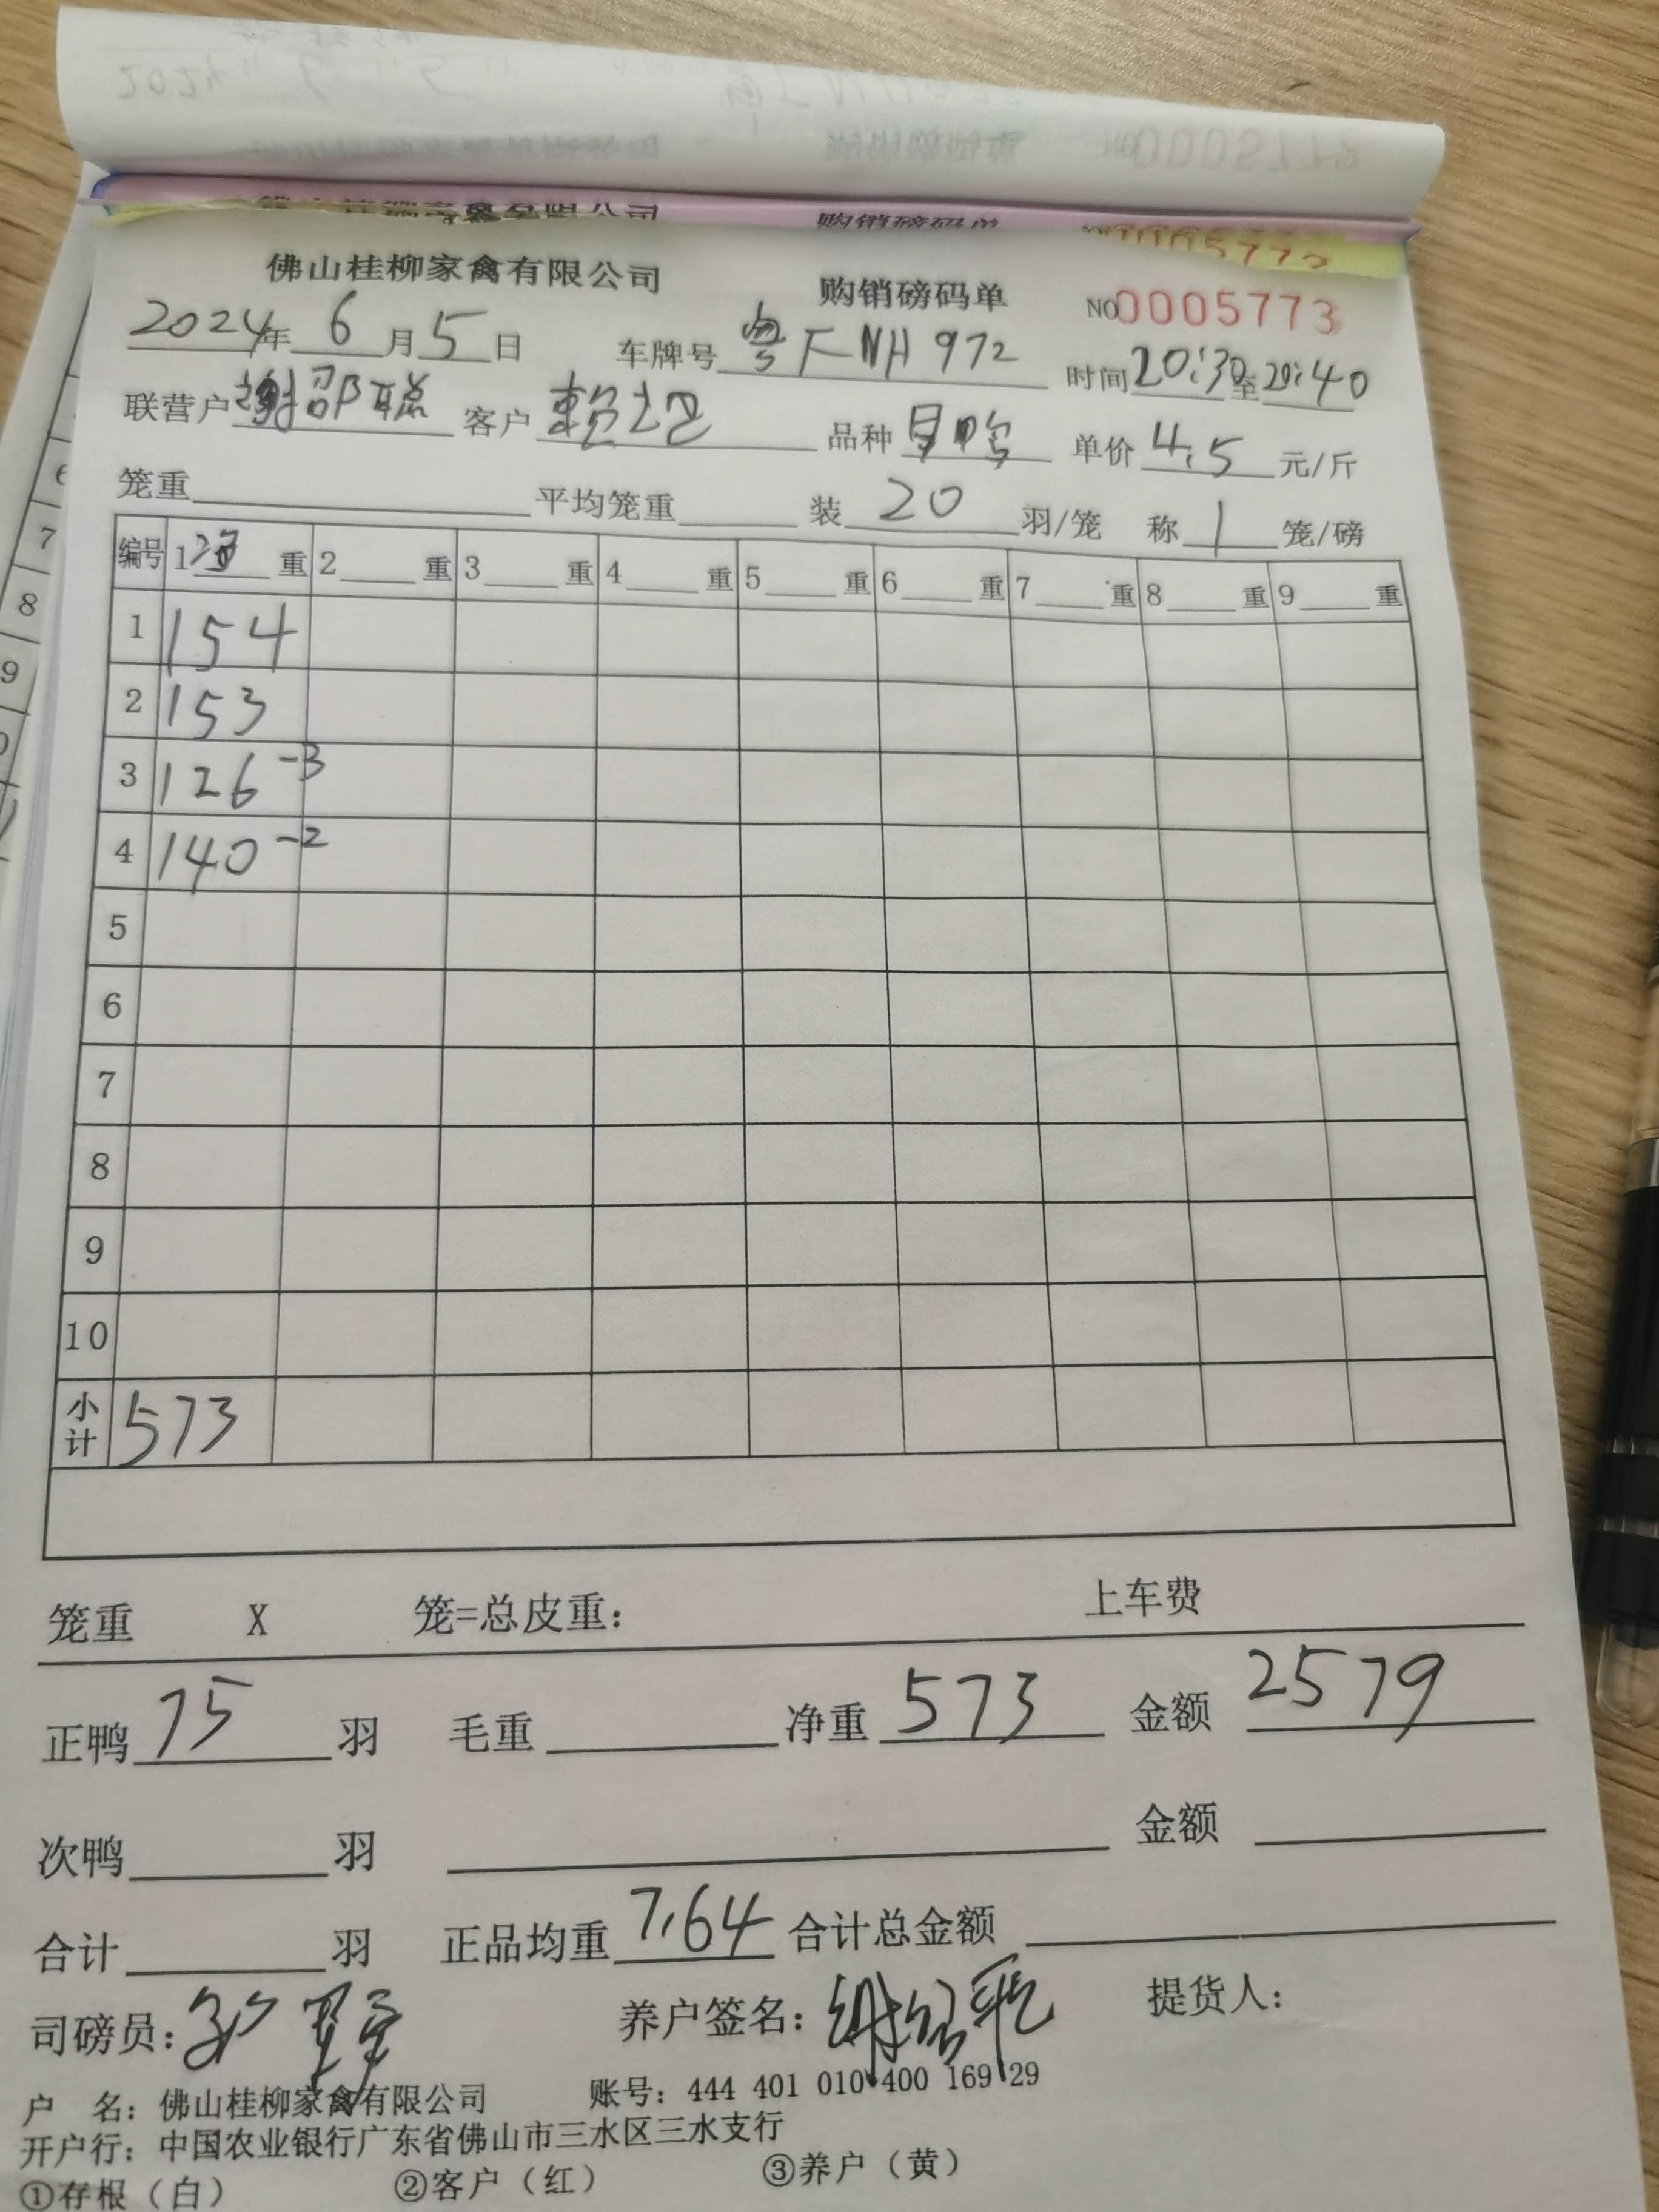 佛山桂柳家禽有限公司 购销磅码单 NO0005773
2024年 6 月 5 日 车牌号 粤FNH972 时间 20:30至20:40
联营户 谢邵聪 客户 赖 品种 单价 4.5 元/斤
笼重 平均笼重 装 20 羽/笼 称 1 笼/磅
编号 1 净 重 2 重 3 重 4 重 5 重 6 重 7 重 8 重 9 重
1 154
2 153
3 126 -3
4 140 -2
5
6
7
8
9
10
小计 573
笼重 X 笼=总皮重: 上车费
正鸭 75 羽 毛重 净重 573 金额 2579
次鸭 羽 金额
合计 羽 正品均重 7.64 合计总金额
司磅员: 养户签名: 提货人:
户 名: 佛山桂柳家禽有限公司 账号: 444 401 010 400 169 29
开户行: 中国农业银行广东省佛山市三水区三水支行
①存根（白） ②客户（红） ③养户（黄）